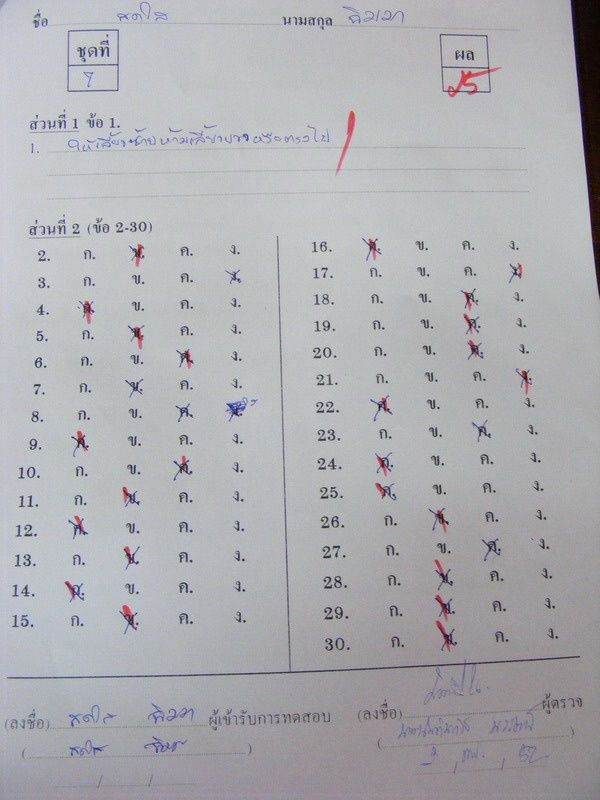 ชื่อ สดใส นามสกุล
ชุดที่
7
ผล
25
ส่วนที่ 1 ข้อ 1.
1. ให้เลี้ยวซ้ายห้ามเลี้ยวขวาหรือตรงไป
ส่วนที่ 2 (ข้อ 2-30)
2. ก. ข. ค. ง.
3. ก. ข. ค. ง.
4. ก. ข. ค. ง.
5. ก. ข. ค. ง.
6. ก. ข. ค. ง.
7. ก. ข. ค. ง.
8. ก. ข. ค. ง.
9. ก. ข. ค. ง.
10. ก. ข. ค. ง.
11. ก. ข. ค. ง.
12. ก. ข. ค. ง.
13. ก. ข. ค. ง.
14. ก. ข. ค. ง.
15. ก. ข. ค. ง.
16. ก. ข. ค. ง.
17. ก. ข. ค. ง.
18. ก. ข. ค. ง.
19. ก. ข. ค. ง.
20. ก. ข. ค. ง.
21. ก. ข. ค. ง.
22. ก. ข. ค. ง.
23. ก. ข. ค. ง.
24. ก. ข. ค. ง.
25. ก. ข. ค. ง.
26. ก. ข. ค. ง.
27. ก. ข. ค. ง.
28. ก. ข. ค. ง.
29. ก. ข. ค. ง.
30. ก. ข. ค. ง.
(ลงชื่อ) สดใส ผู้เข้ารับการทดสอบ
( สดใส )
(ลงชื่อ) ผู้ตรวจ